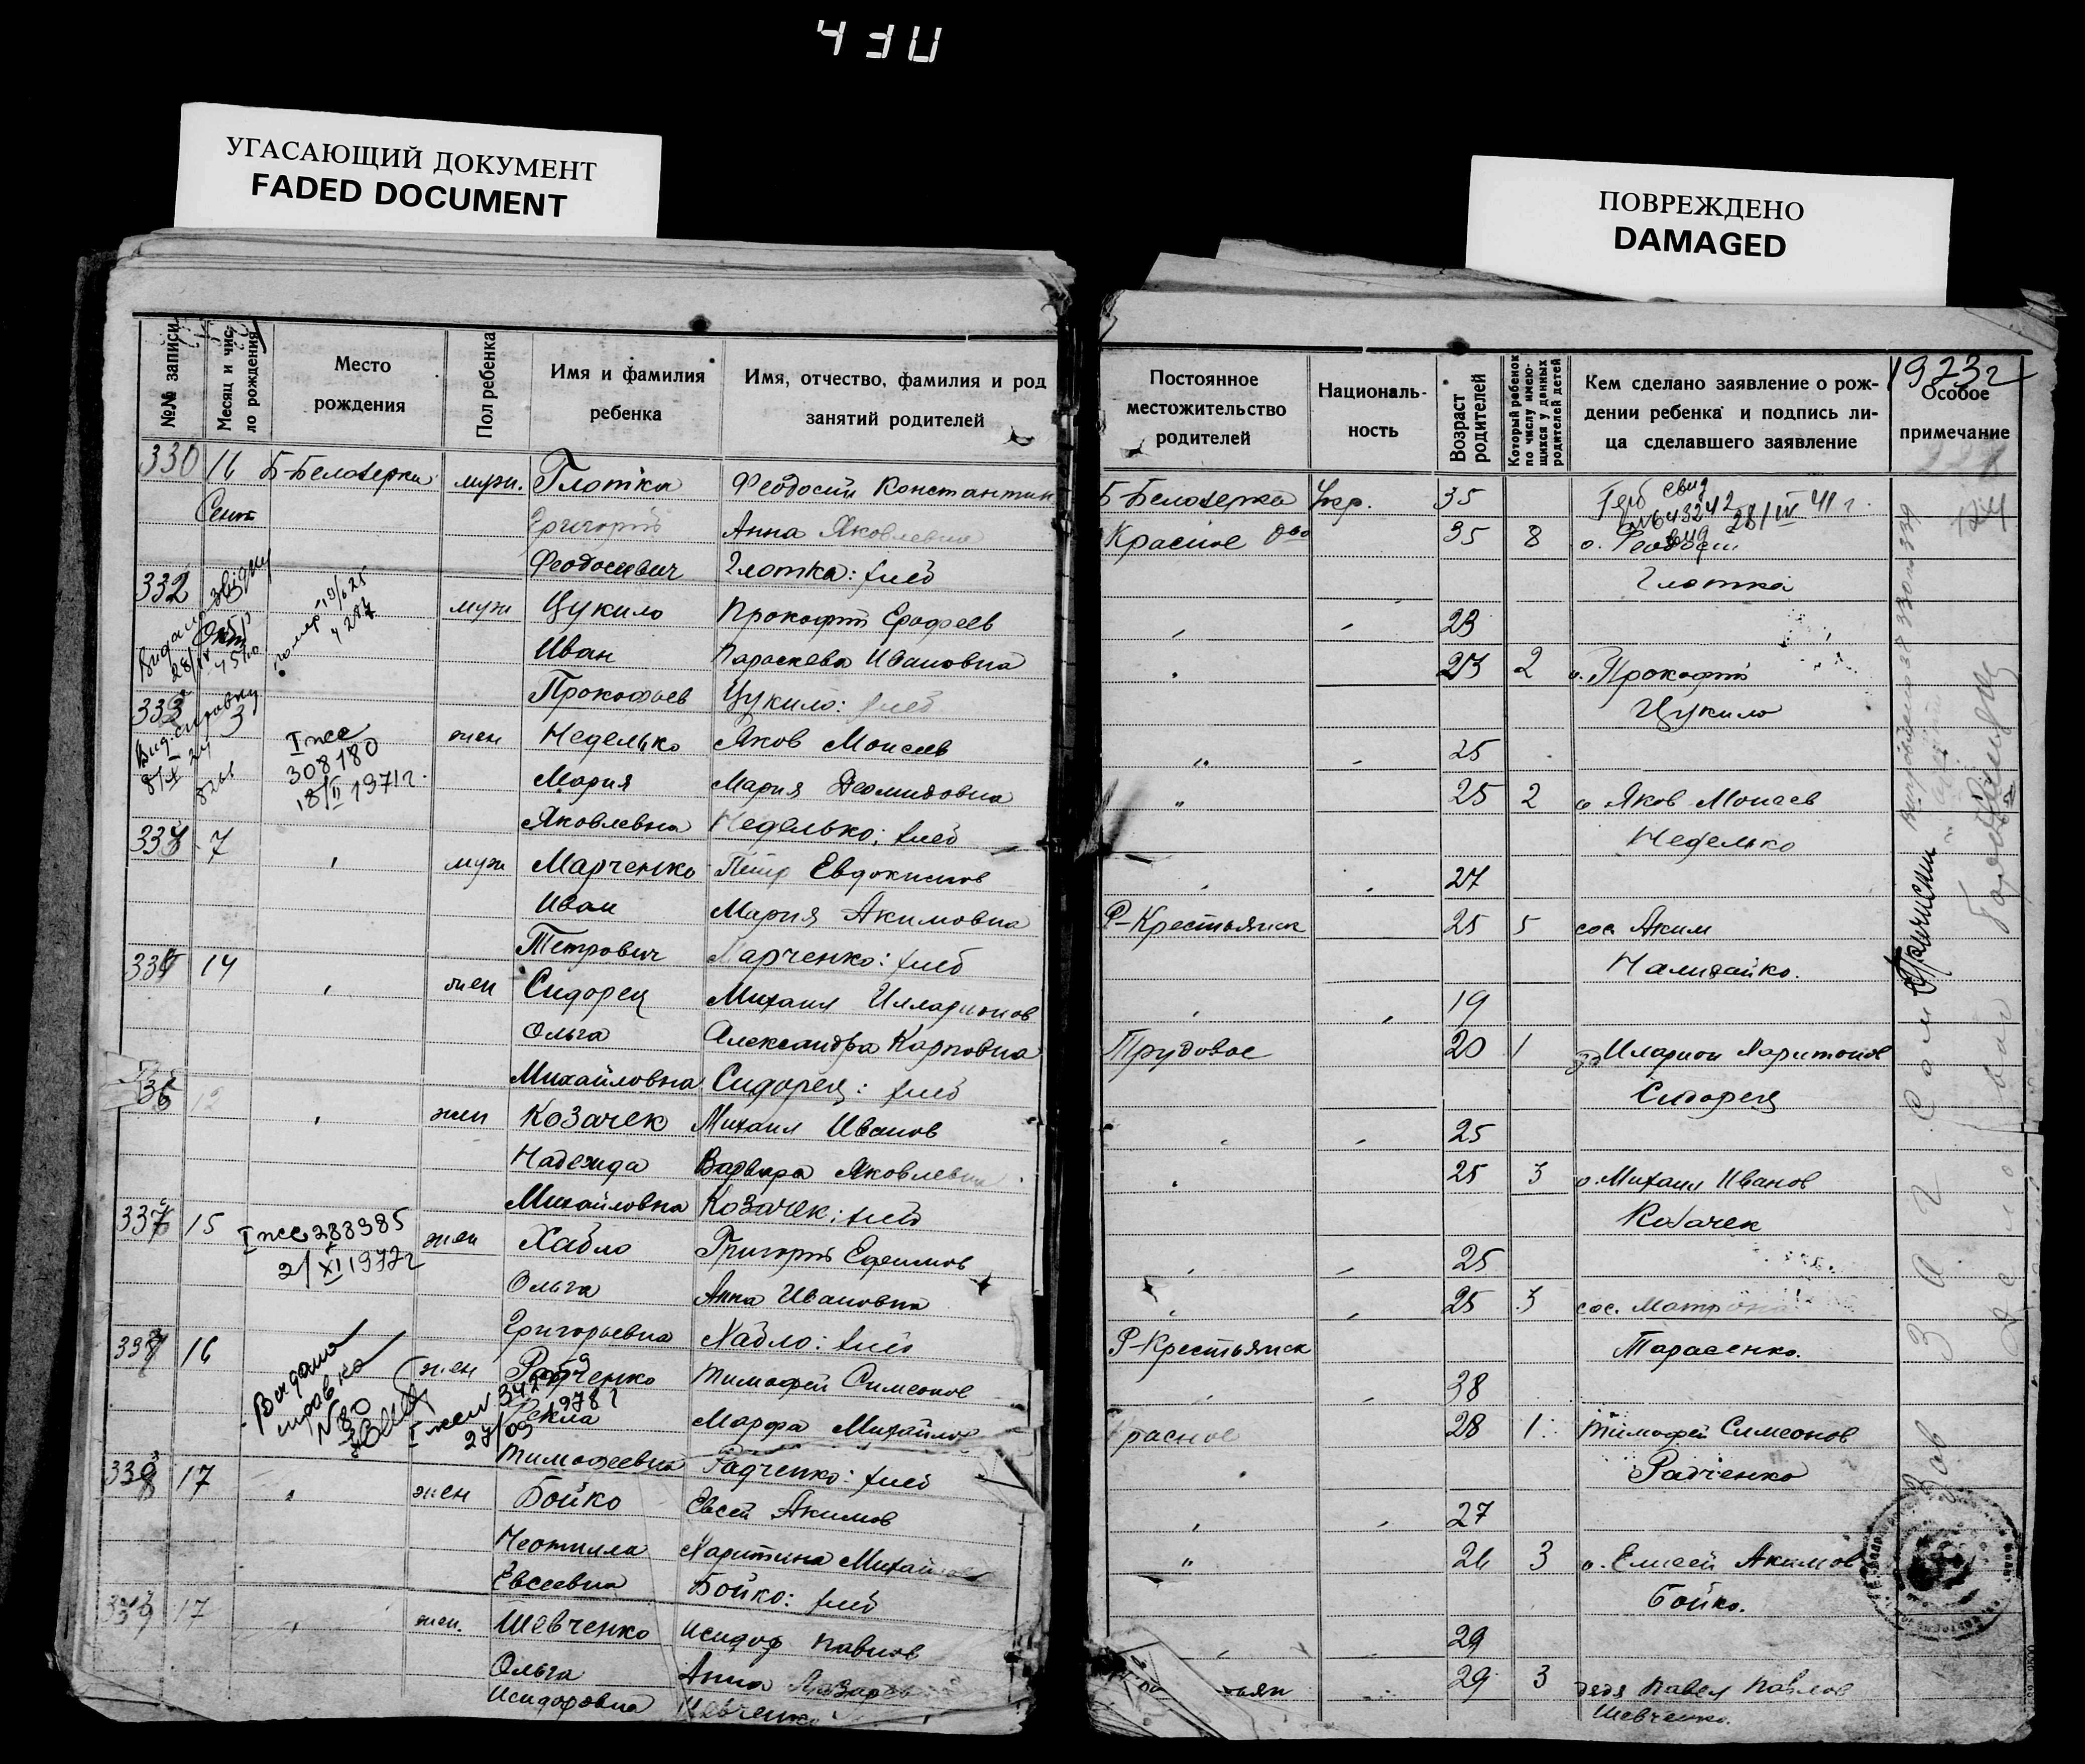 430
УГАСАЮЩИЙ ДОКУМЕНТ
FADED DOCUMENT
ПОВРЕЖДЕНО
DAMAGED
№№ записи
Месяц и число рождения
Место рождения
Пол ребенка
Имя и фамилия ребенка
Имя, отчество, фамилия и род занятий родителей
330 16 Б-Белозерка мужс. Глотка Феодосий Константин
Сент Григорий Анна Яковлевна
Феодосиевич Глотка: хлеб
332 муж Цукило Прокофий Ерофеев
Окт Иван Параскева Ивановна
28/IV 45
помер 19/6 25
Прокофьев Цукило: хлеб
333 3 жен Неделько Яков Моисеев
8/IX 34
I жс
308180
18/II 1971г.
Мария Мария Деомидовна
Яковлевна Неделько: хлеб
334 7 муж Марченко Петр Евдокимов
Иван Мария Акимовна
Петрович Марченко: хлеб
335 14 жен Сидорец Михаил Илларионов
Ольга Александра Карповна
Михайловна Сидорец: хлеб
336 12 жен Козачек Михаил Иванов
Надежда Варвара Яковлевна
Михайловна Козачек: хлеб
337 15 жен Хабло Григорий Ефимов
I жс 283985
2/XI 1972г
Ольга Анна Ивановна
Григорьевна Хабло: хлеб
338 16 жен Радченко Тимофей Симеонов
Видана
справка
N 80
27/09 1978 г
Фекла Марфа Михайлов
Тимофеевна Радченко: хлеб
339 17 жен Бойко Евсей Акимов
Неонила Харитина Михайлов
Евсеевна Бойко: хлеб
17 жен. Шевченко Исидор Павлов
Ольга Анна
Исидоровна Шевченко
Постоянное местожительство родителей
Националь-ность
Возраст родителей
Который ребенок по числу имеющихся у данных родителей детей
Кем сделано заявление о рож-
дении ребенка и подпись ли-
ца сделавшего заявление
1923г
Особое
примечание
Б-Белозерка Укр. 35 свид
643242 28/III 41 г.
Красное 35 8 о. Феодосий
Глотка
23
23 2 о. Прокофий
Цукило
25
" 25 2 о. Яков Моисеев
Неделько
27
Р-Крестьянск 25 5 сос. Аким
Наливайко.
19
Трудовое 20 1 Иларион Харитонов
Сидорец
25
25 3 о. Михаил Иванов
Козачек
25
25 3 сос. Матрона
Р-Крестьянск Тарасенко.
38
Красное 28 1 Тимофей Симеонов
Радченко
27
" 26 3 о. Елисей Акимов
Бойко.
29
29 3 дядя Павел Павлов
Шевченко.